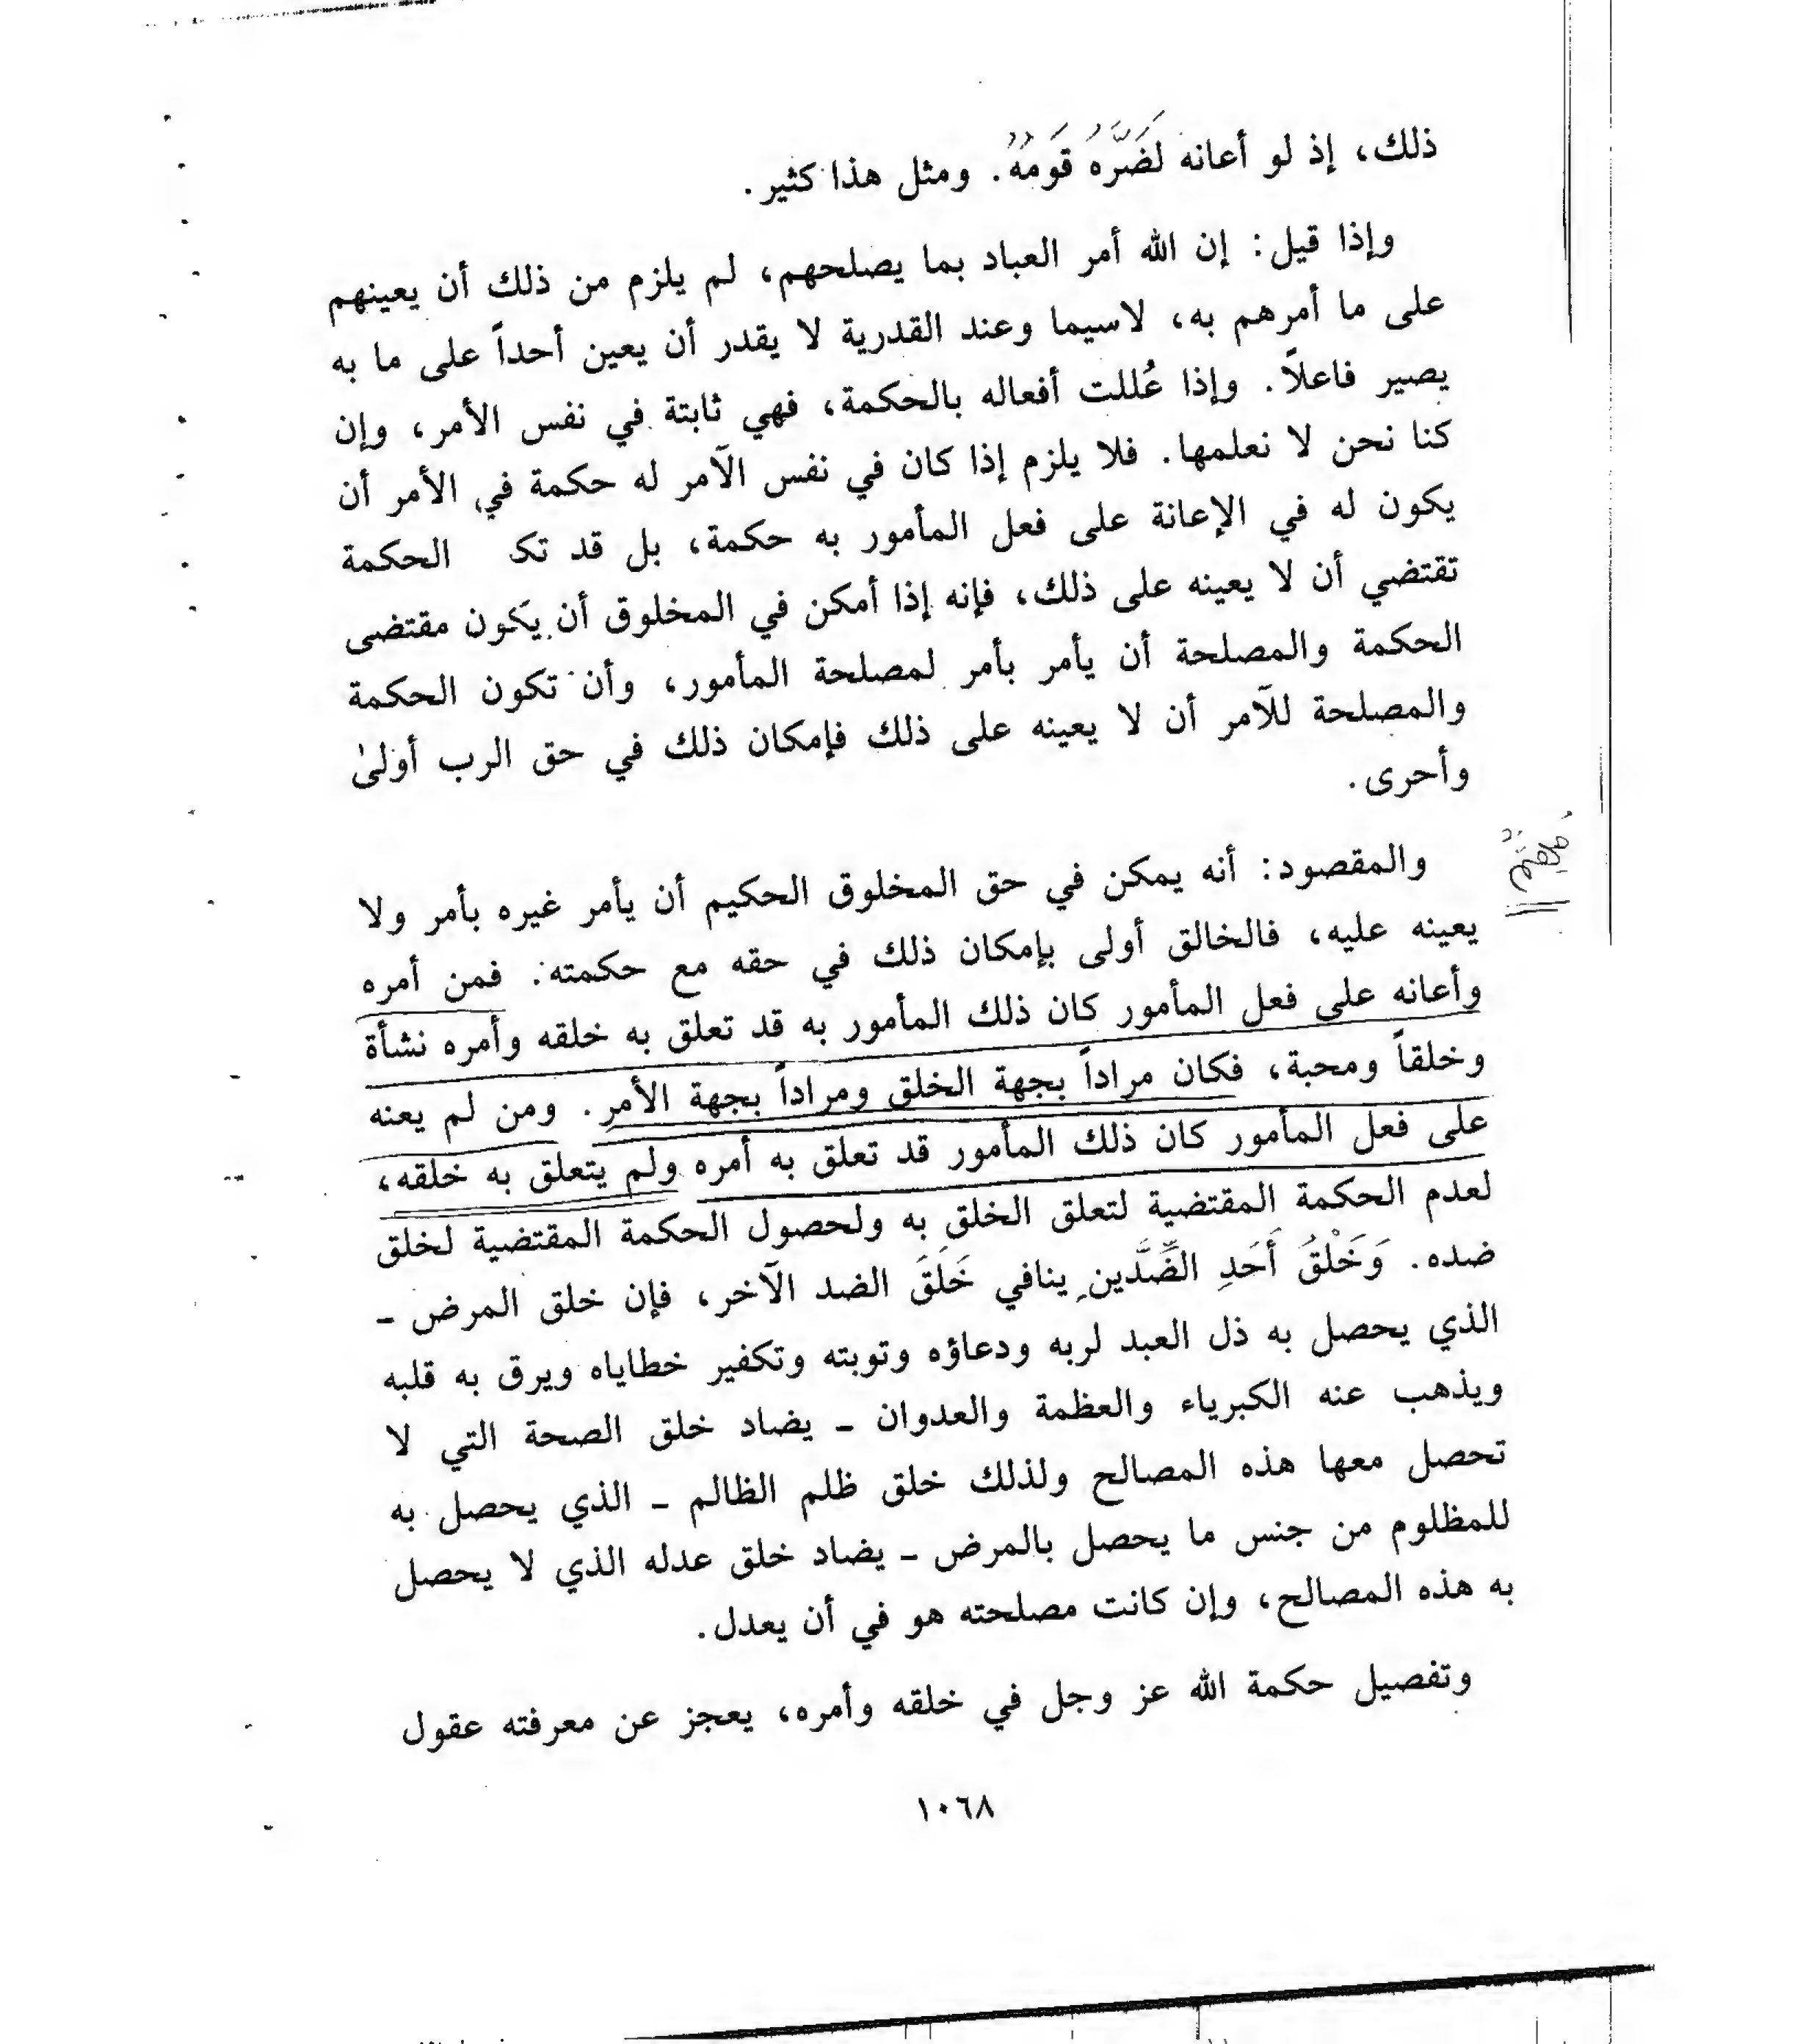 ذلك، إذ لو أعانه لَضَرَّهُ قَومُهُ. ومثل هذا كثير.
وإذا قيل: إن الله أمر العباد بما يصلحهم، لم يلزم من ذلك أن يعينهم
على ما أمرهم به، لاسيما وعند القدرية لا يقدر أن يعين أحداً على ما به
يصير فاعلاً. وإذا عُللت أفعاله بالحكمة، فهي ثابتة في نفس الأمر، وإن
كنا نحن لا نعلمها. فلا يلزم إذا كان في نفس الآمر له حكمة في الأمر أن
يكون له في الإعانة على فعل المأمور به حكمة، بل قد تك الحكمة
تقتضي أن لا يعينه على ذلك، فإنه إذا أمكن في المخلوق أن يَكون مقتضى
الحكمة والمصلحة أن يأمر بأمر لمصلحة المأمور، وأن تكون الحكمة
والمصلحة للآمر أن لا يعينه على ذلك فإمكان ذلك في حق الرب أولىٰ
وأحرى.
والمقصود: أنه يمكن في حق المخلوق الحكيم أن يأمر غيره بأمر ولا
يعينه عليه، فالخالق أولى بإمكان ذلك في حقه مع حكمته. فمن أمره
وأعانه على فعل المأمور كان ذلك المأمور به قد تعلق به خلقه وأمره نشأة
وخلقاً ومحبة، فكان مراداً بجهة الخلق ومراداً بجهة الأمر. ومن لم يعنه
على فعل المأمور كان ذلك المأمور قد تعلق به أمره ولم يتعلق به خلقه،
لعدم الحكمة المقتضية لتعلق الخلق به ولحصول الحكمة المقتضية لخلق
ضده. وَخَلْقُ أَحَدِ الضِّدَّينِ ينافي خَلَقَ الضد الآخر، فإن خلق المرض -
الذي يحصل به ذل العبد لربه ودعاؤه وتوبته وتكفير خطاياه ويرق به قلبه
ويذهب عنه الكبرياء والعظمة والعدوان - يضاد خلق الصحة التي لا
تحصل معها هذه المصالح ولذلك خلق ظلم الظالم - الذي يحصل به
للمظلوم من جنس ما يحصل بالمرض - يضاد خلق عدله الذي لا يحصل
به هذه المصالح، وإن كانت مصلحته هو في أن يعدل.
وتفصيل حكمة الله عز وجل في خلقه وأمره، يعجز عن معرفته عقول
١٠٦٨